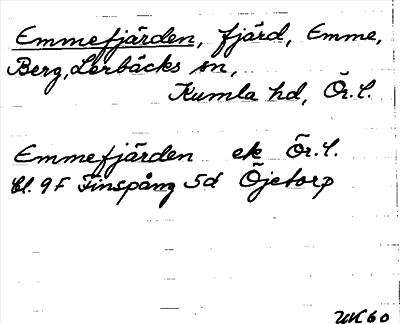 Emmefjärden, fjärd, Emme,
Berg, Lerbäcks sn,
Kumla hd, Ör.l.
Emmefjärden ek Ör.l.
Bl. 9F Finspång 5d Öjetorp
UK 60